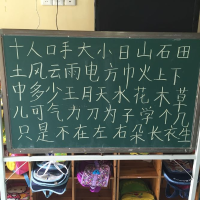 十人口手大小日山石田
土风云雨电方巾火上下
中多少王月天水花木草
儿可气力刀为子学个几
只是不在左右朵长衣生